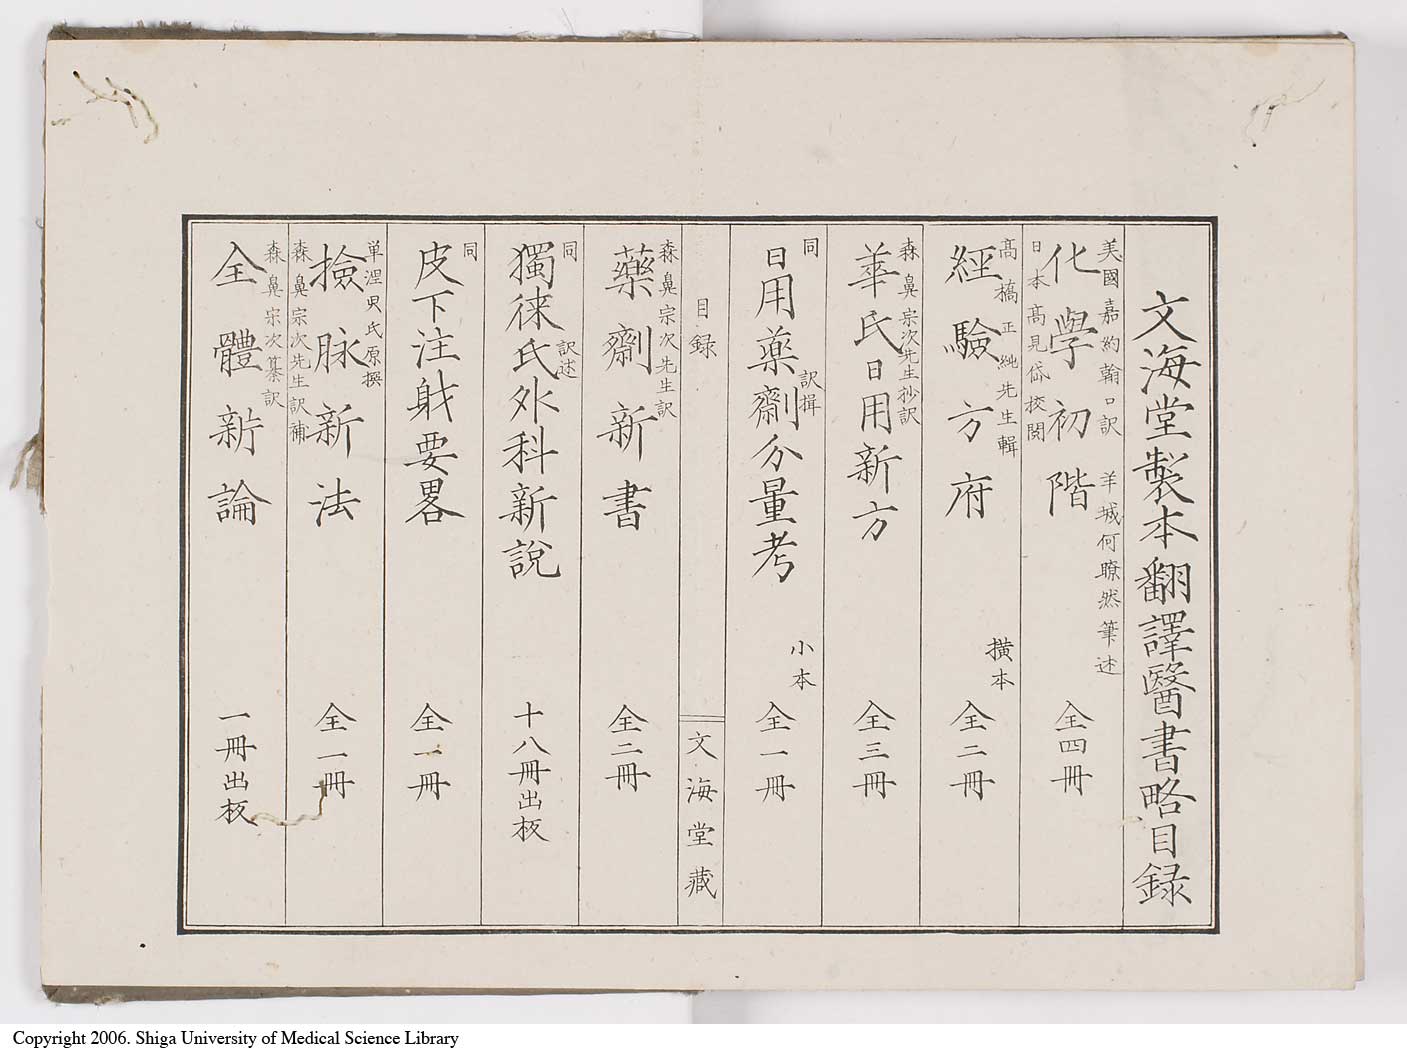 文海堂製本翻譯醫書略目録
美國嘉約翰口訳 羊城何瞭然筆述
日本高見岱校閲
化學初階 全四冊
高橋正純先生輯
經驗方府 横本 全二冊
森鼻宗次先生抄訳
華氏日用新方 全三冊
同 訳揖
日用藥劑分量考 小本 全一冊
目録
文海堂藏
森鼻宗次先生訳
藥劑新書 全二冊
同 訳述
獨徠氏外科新說 十八冊出板
同
皮下注射要畧 全一冊
単涅氏原撰
森鼻宗次先生訳補
撿脉新法 全一冊
森鼻宗次纂訳
全體新論 一冊出板
Copyright 2006. Shiga University of Medical Science Library